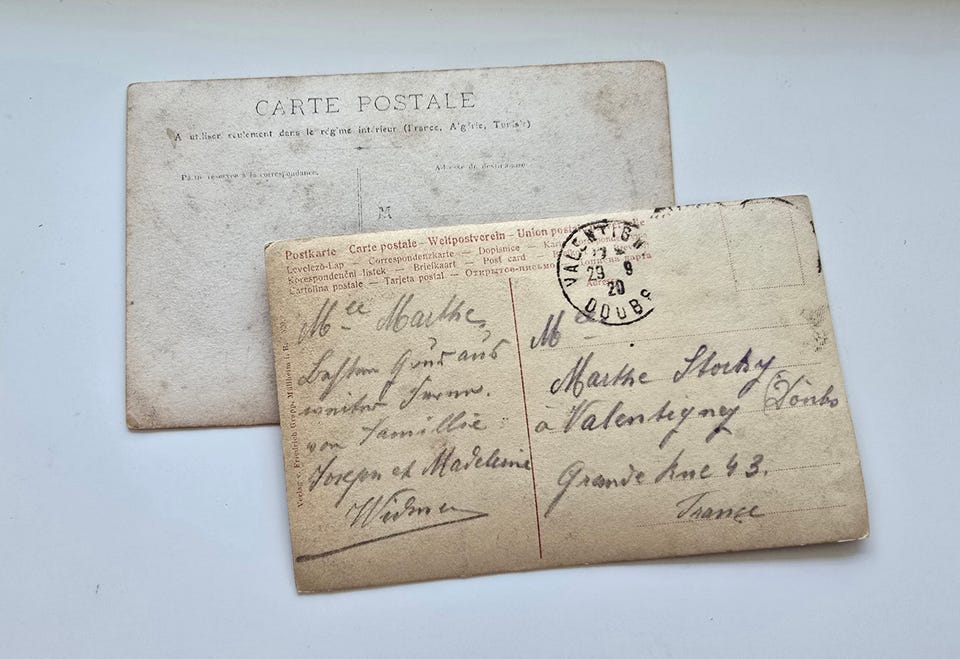 CARTE POSTALE
A utiliser seulement dans le régime intérieur (France, Algérie, Tunisie)
Partie réservée à la correspondance.
Adresse du destinataire
M
Postkarte Carte postale - Weltpostverein - Union postale
Levelező-Lap - Correspondenzkarte - Dopisnice
Korespondenční lístek - Briefkaart - Post card
Cartolina postale - Tarjeta postal - Открытое письмо
VALENTIGN
29 9
20
DOUBS
Mee Marthe,
Besten Gruss aus
weiter Ferne.
von Famillie
Joseph et Madeleine
Widmer
Mee
Marthe Storky
à Valentigney (Doubs
Grande Rue 43.
France
Verlag v. Friedrich Gropp, Müllheim i. B.